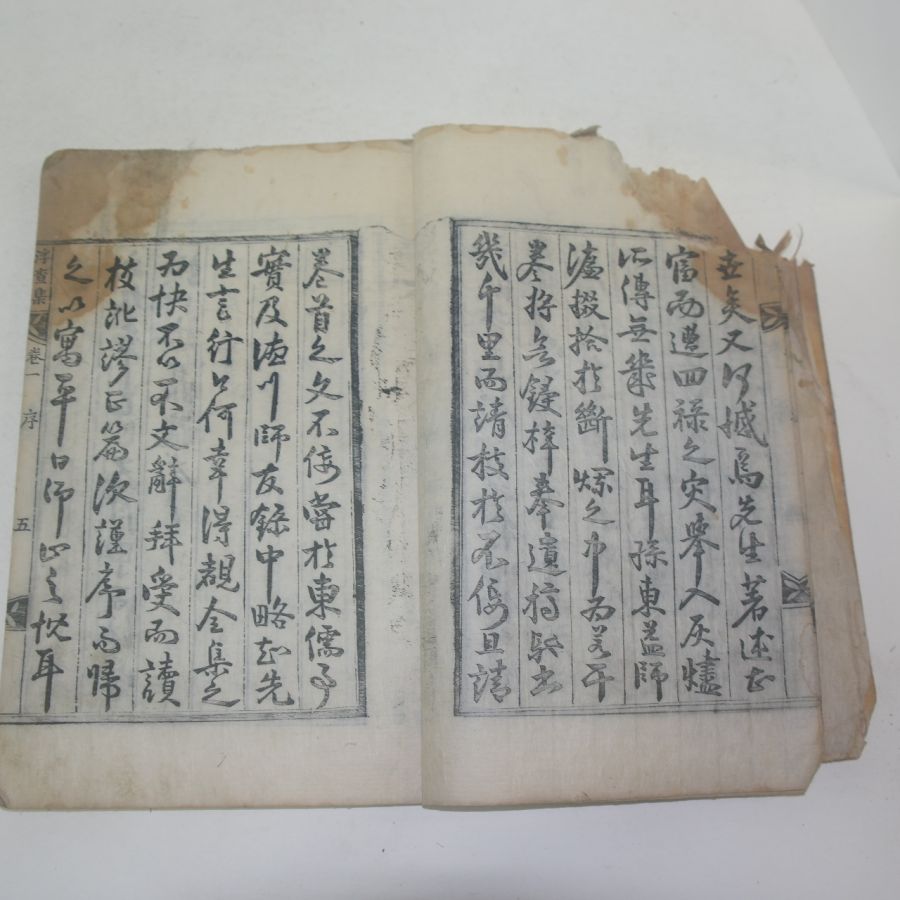 矣又何憾焉先生著述甚
富而遭回祿之災畢入灰燼
所傳無幾先生耳孫東益師
掇拾於斷爛之中爲若干
卷將鋟梓奉遺稿
幾千里而請校於不佞且請
卷首之文不佞嘗於東儒事
實及川師友錄中略知先
生言行今何幸得覩全集之
爲快不以不文辭拜受而讀
校訛謬正篇次謹序而歸
之以寓平日仰止之忱耳
浮查集 卷一 序 五